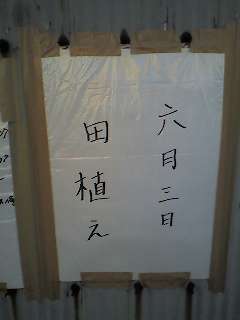 六月三日
田植え